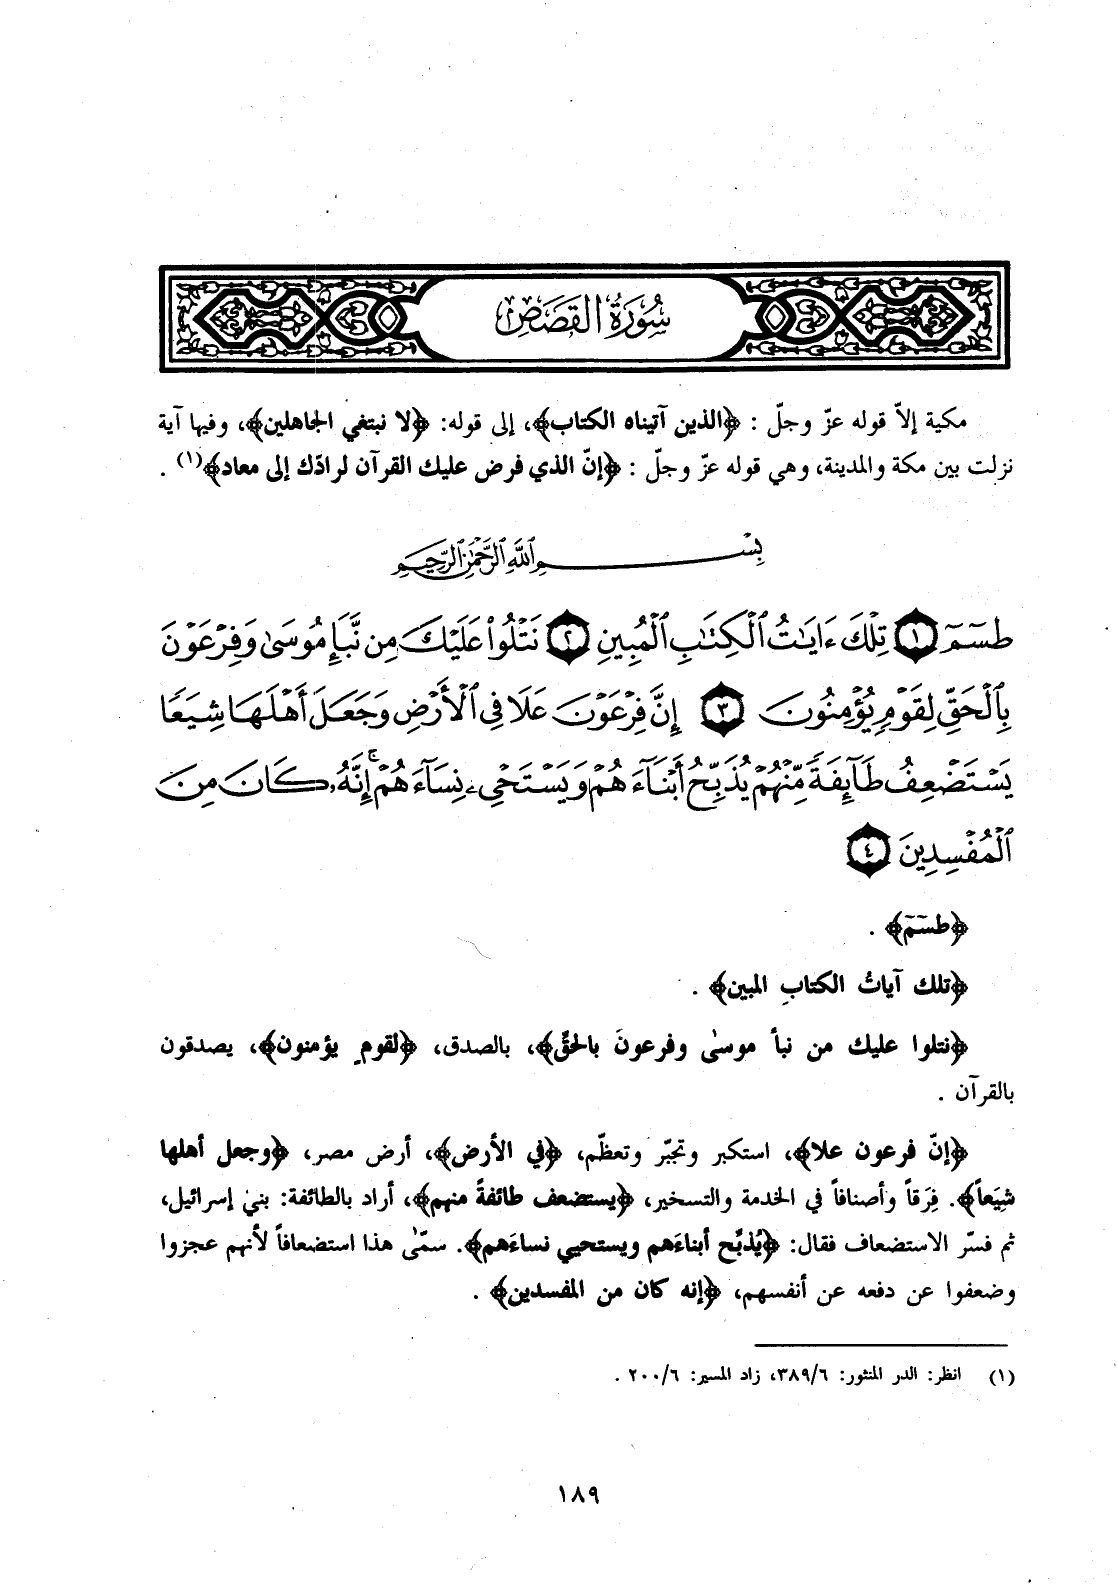 سُورَةُ القَصَصِ
مكية إلاّ قوله عزّ وجلّ : ﴿الذين آتيناه الكتاب﴾، إلى قوله: ﴿لا نبتغي الجاهلين﴾، وفيها آية
نزلت بين مكة والمدينة، وهي قوله عزّ وجلّ : ﴿إنّ الذي فرض عليك القرآن لرادّك إلى معاد﴾(١) .
بِسْمِ اللَّهِ الرَّحْمَٰنِ الرَّحِيمِ
طسٓمٓ ١ تِلْكَ ءَايَٰتُ ٱلْكِتَٰبِ ٱلْمُبِينِ ٢ نَتْلُوا۟ عَلَيْكَ مِن نَّبَإِ مُوسَىٰ وَفِرْعَوْنَ
بِٱلْحَقِّ لِقَوْمٍ يُؤْمِنُونَ ٣ إِنَّ فِرْعَوْنَ عَلَا فِى ٱلْأَرْضِ وَجَعَلَ أَهْلَهَا شِيَعًا
يَسْتَضْعِفُ طَآئِفَةً مِّنْهُمْ يُذَبِّحُ أَبْنَآءَهُمْ وَيَسْتَحْىِۦ نِسَآءَهُمْ ۚ إِنَّهُۥ كَانَ مِنَ
ٱلْمُفْسِدِينَ ٤
﴿طسٓمٓ﴾ .
﴿تلك آياتُ الكتابِ المبين﴾ .
﴿نتلوا عليك من نبأ موسىٰ وفرعونَ بالحقِّ﴾، بالصدق، ﴿لقومٍ يؤمنون﴾، يصدقون
بالقرآن .
﴿إنّ فرعون علا﴾، استكبر وتجبّر وتعظّم، ﴿في الأرض﴾، أرض مصر، ﴿وجعل أهلها
شِيَعاً﴾. فِرَقاً وأصنافاً في الخدمة والتسخير، ﴿يستضعف طائفةً منهم﴾، أراد بالطائفة: بني إسرائيل،
ثم فسّر الاستضعاف فقال: ﴿يُذبِّح أبناءَهم ويستحيي نساءَهم﴾. سمّىٰ هذا استضعافاً لأنهم عجزوا
وضعفوا عن دفعه عن أنفسهم، ﴿إنه كان من المفسدين﴾ .
(١) انظر: الدر المنثور: ٣٨٩/٦، زاد المسير: ٢٠٠/٦ .
١٨٩